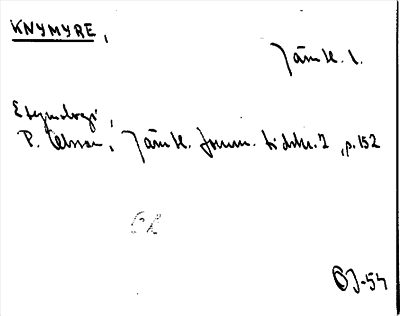 KNYMYRE,
Jämtl. l.
Etymologi,
P. Olsson, Jämtl. fornm. tidskr. 2, p. 152
ER
OJ-54